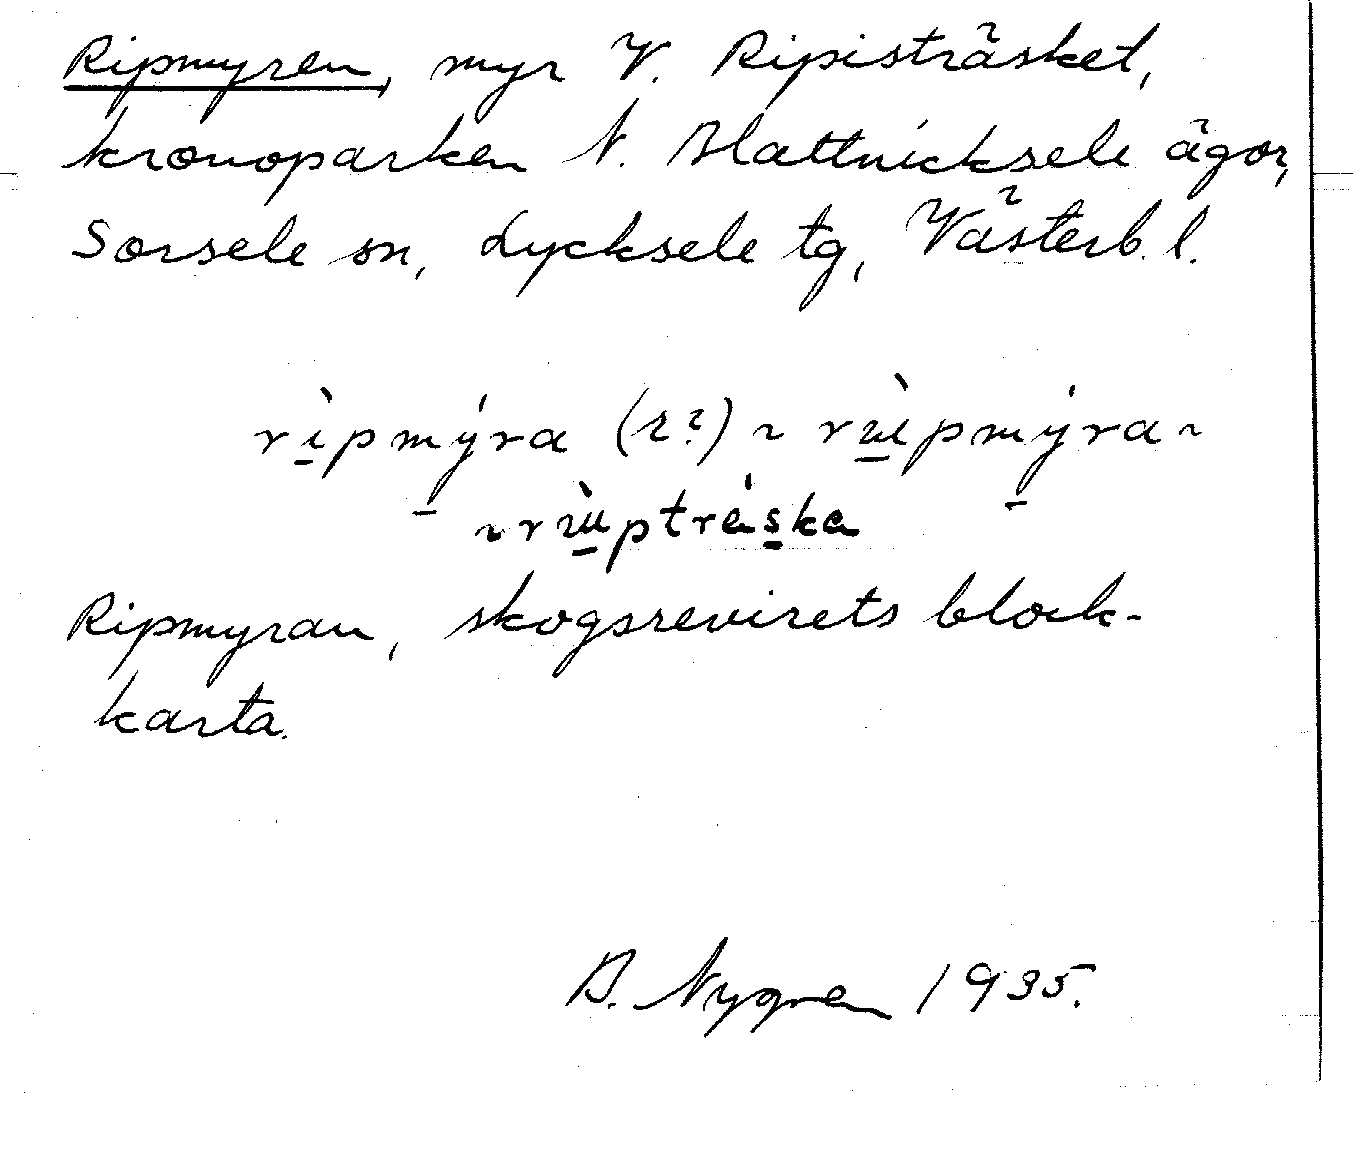 Ripmyren, myr V. Ripisträsket,
kronoparken N. Blattnicksele ägor,
Sorsele sn, Lycksele tg, Västerb. l.
rìpmýra (r?) ~ rɯ̀pmýra ~
~ rɯ̀ptráska
Ripmyran, skogsrevirets block-
karta.
B. Nygren 1935.